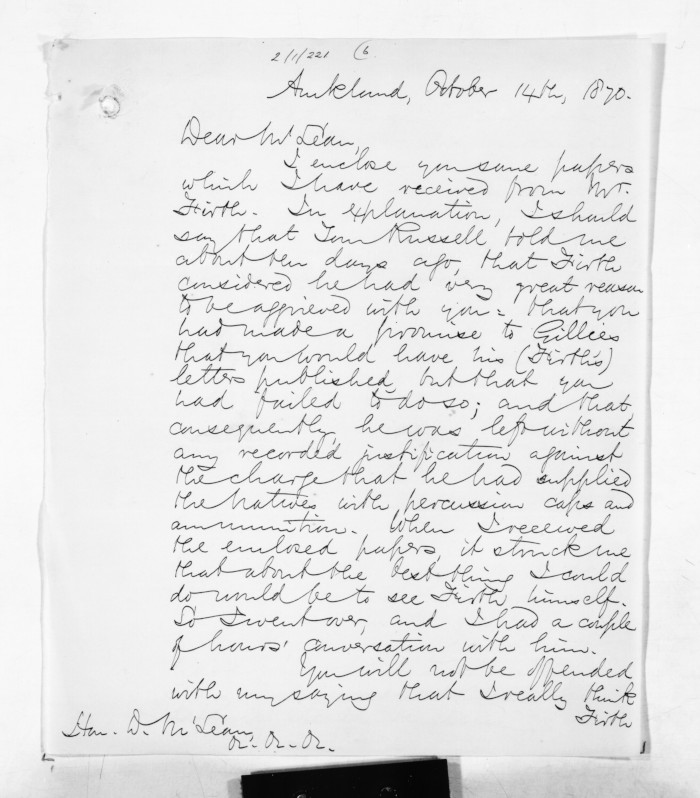 2/1/221 6
Auckland, October 14th, 1870.
Dear McLean,
I enclose you some papers
which I have received from Mr.
Firth. In explanation, I should
say that Tom Russell told me
about ten days ago, that Firth
considered he had very great reason
to be aggrieved with you: that you
had made a promise to Gillies
that you would have his (Firth's)
letters published, but that you
had failed to do so; and that,
consequently, he was left without
any recorded justification against
the charge that he had supplied
the Natives with percussion caps and
ammunition. When I received
the enclosed papers, it struck me
that about the best thing I could
do would be to see Firth himself.
So I went over, and I had a couple
of hours' conversation with him.
You will not be offended
with my saying that I really think
Firth
Hon. D. McLean,